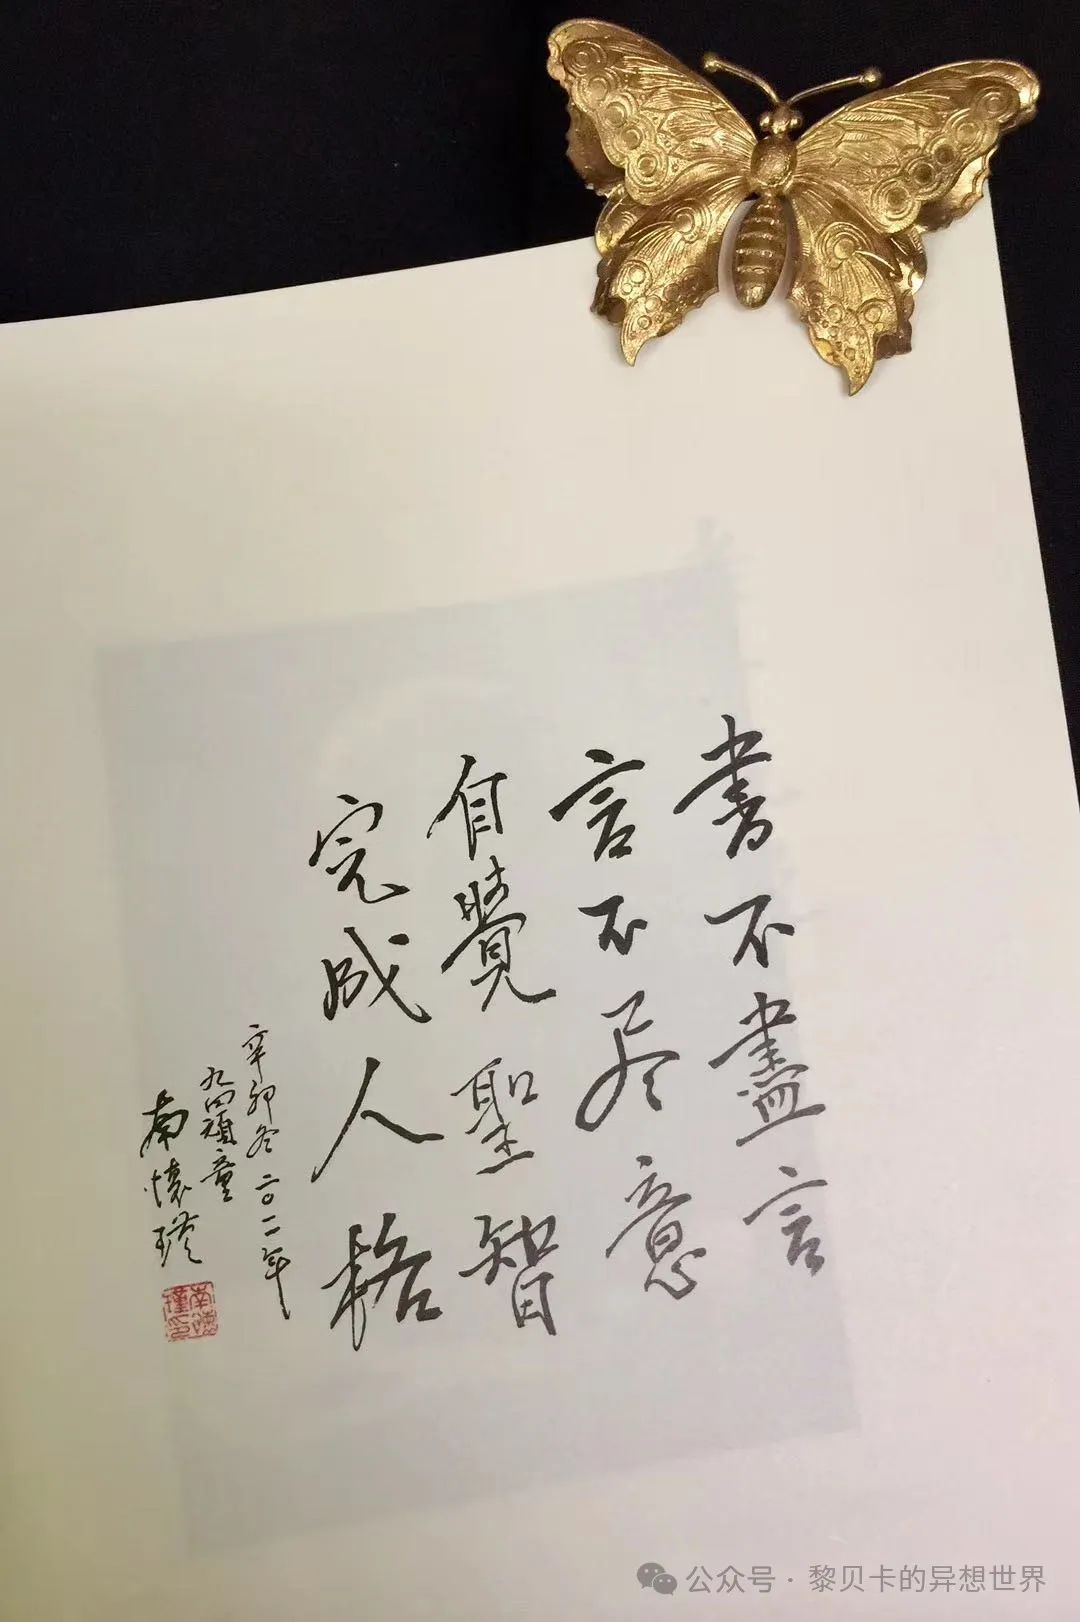 書不盡言
言不尽意
自覺聖智
完成人格
辛卯冬二〇一一年
九四頑童
南懷瑾
南懷瑾印
公众号·黎贝卡的异想世界